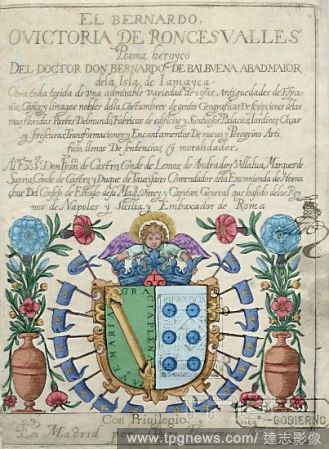 EL BERNARDO,
O VICTORIA DE RONCESVALLES
Poema heroyco
DEL DOCTOR DON BERNARDO DE BALBVENA ABAD MAIOR
de la Isla de Iamayca
Obra toda texida de vna admirable variedad de cosas. Antiguedades de Espa
ña, Casas y linages nobles della, Costumbres de gentes, Geograficas Descripciones de las
mas floridas Partes Del mundo, Fabricas de edificios y Suntuosos Palacios, Jardines, Caças
y frescuras, Transformaciones y Encantamentos De nuevo y Peregrino Arti
ficio, llenos De sentencias y moralidades.
Don Fran. de Castro, Conde de Lemos de Andrade y Villalua, Marques de
Sarria, Conde de Castro y Duque de Comendador de la Encomienda de Horna
chos Del Consejo de Estado de su Mag. Virrey y Capitan General que ha sido de los Rey
nos de Napoles y Sicilia y Embaxador de Roma
AVE MARIA GRACIA PLENA
Con Privilegio.
En Madrid por
GOBIERNO
www.tpgnews.com/ 達志影像